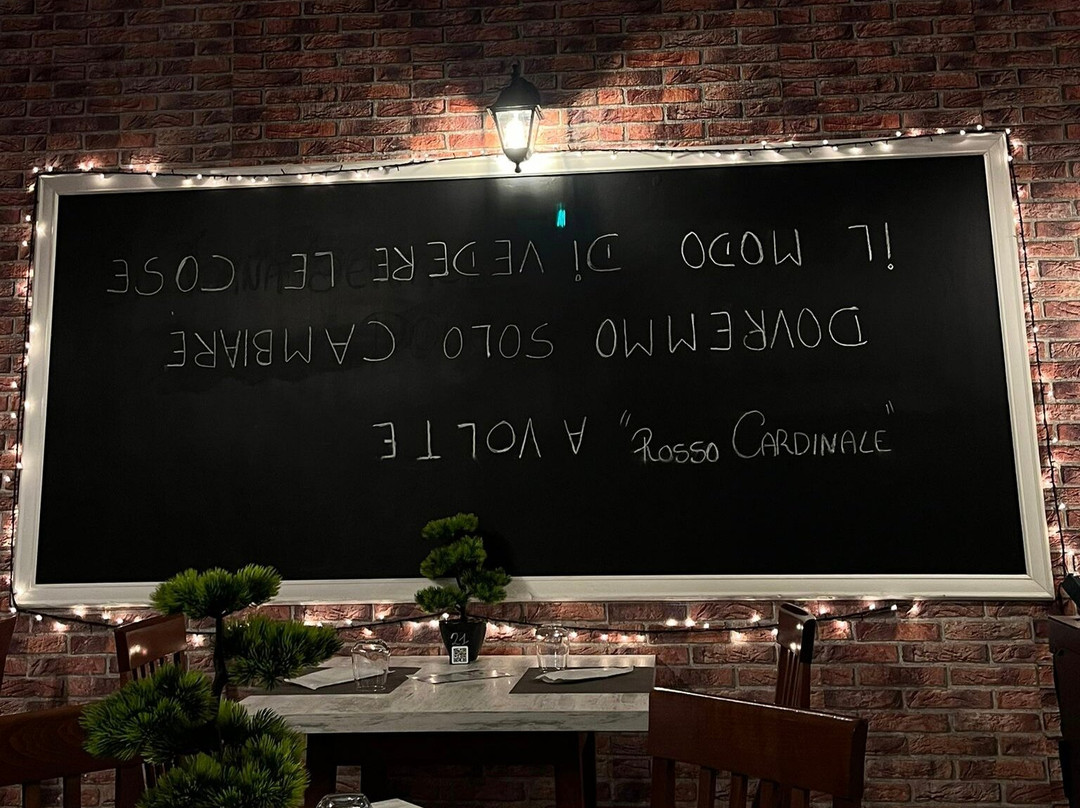 A VOLTE
"ROSSO CARDINALE"
DOVREMMO SOLO CAMBIARE
IL MODO DI VEDERE LE COSE
21